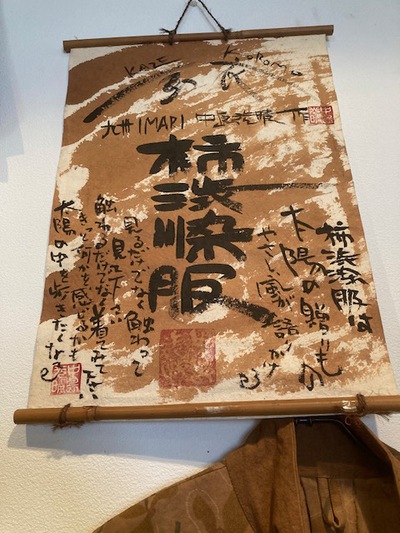 KAZE Koromo
衣
九州 IMARI
柿渋染服
柿渋染服は
太陽の贈りもの
やさしい風が語りかける
見るだけでなく触わって
見て下さい
触わるだけでなく着てみて下さい
きっと何かを感じるかも
太陽の中を歩きたくなる